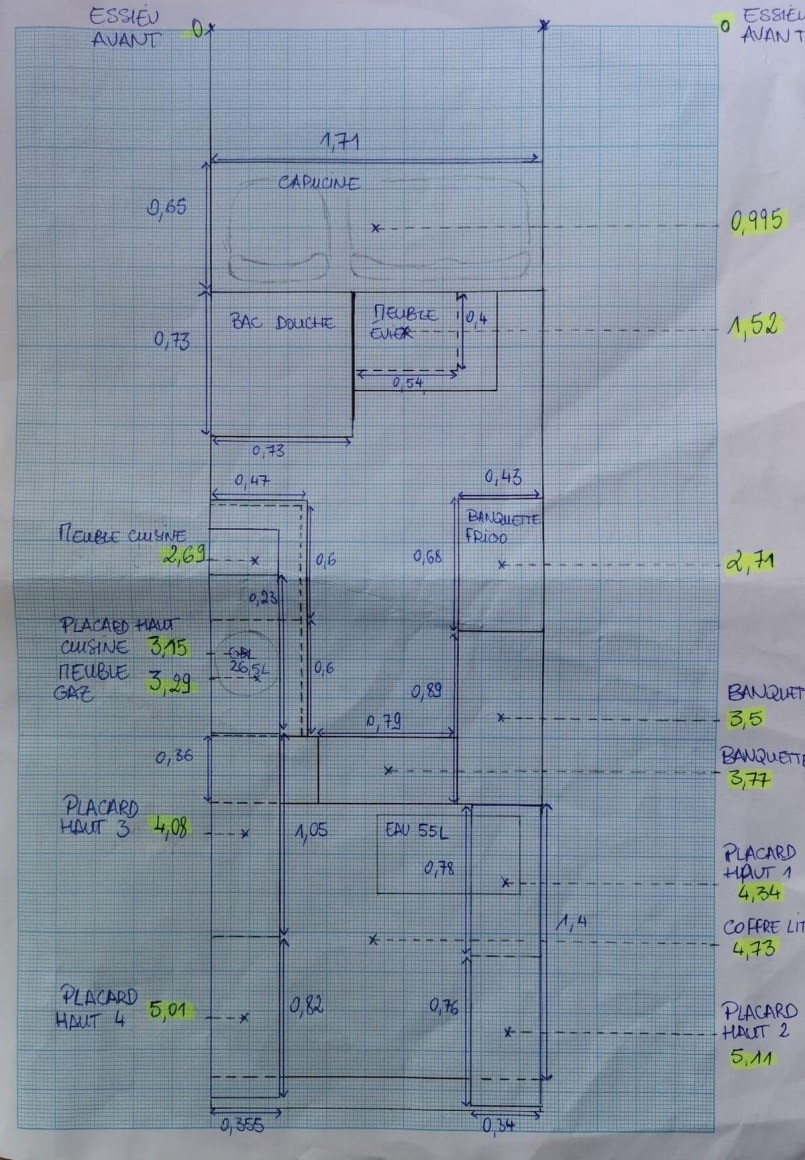 ESSIEU
AVANT
0
0
ESSIEU
AVANT
1,71
CAPUCINE
0,65
0,995
BAC DOUCHE
MEUBLE
ÉVIER
0,4
1,52
0,73
0,54
0,73
0,47
0,43
BANQUETTE
FRIGO
MEUBLE CUISINE
2,69
0,6
0,68
2,71
0,23
PLACARD HAUT
CUISINE 3,15
MEUBLE
GAZ
3,29
26,5L
0,6
0,89
BANQUET
3,5
0,79
0,36
BANQUETTE
3,77
PLACARD
HAUT 3
4,08
1,05
EAU 55L
0,78
PLACARD
HAUT 1
4,34
1,4
COFFRE LIT
4,73
PLACARD
HAUT 4
5,01
0,82
0,76
PLACARD
HAUT 2
5,11
0,355
0,34